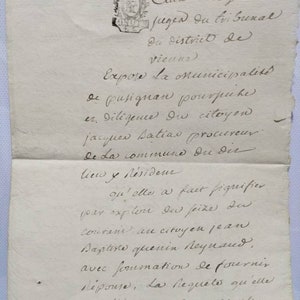 juges du tribunal
du district de
vienne
Expose La Municipalité
de pusignan poursuite
et diligence du citoyen
jacques procureur
de La commune du dit
lieu y Résident
qu'elle a fait signifier
par exploit du seize du
courant au citoyen jean
Baptiste quenin Reynaud,
avec sommation de fournir
Réponse, La Requête qu'elle